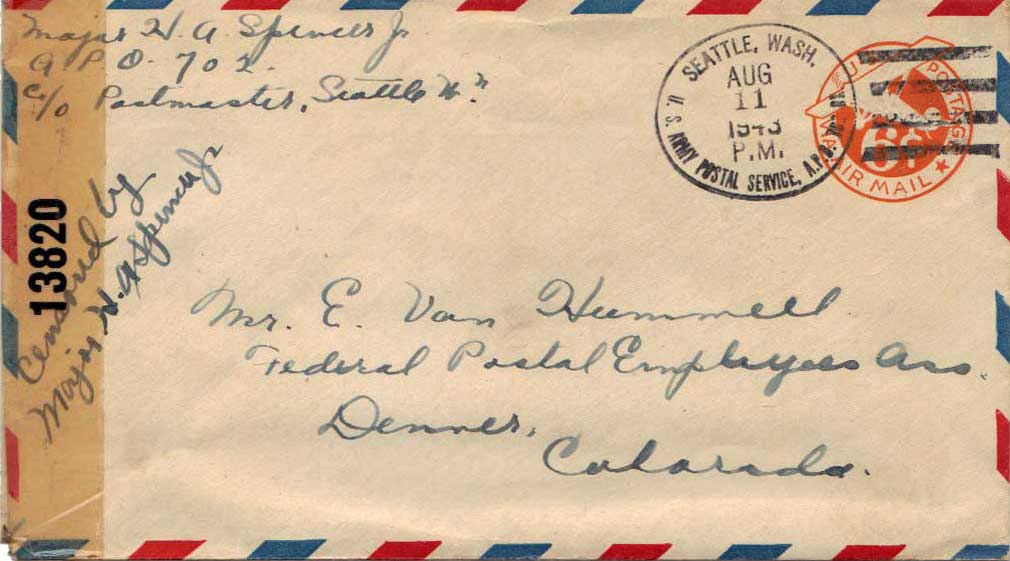 Major H. A. Spencer Jr
A P O. 702.
c/o Postmaster, Seattle W.
SEATTLE, WASH.
AUG
11
1943
P.M.
U. S. ARMY POSTAL SERVICE, A.P.O.
POSTAGE
6¢
AIR MAIL
13820
Censored by
Major H. A Spencer Jr
Mr. E. Van Hummell
Federal Postal Employees Ass.
Denver,
Colorado.